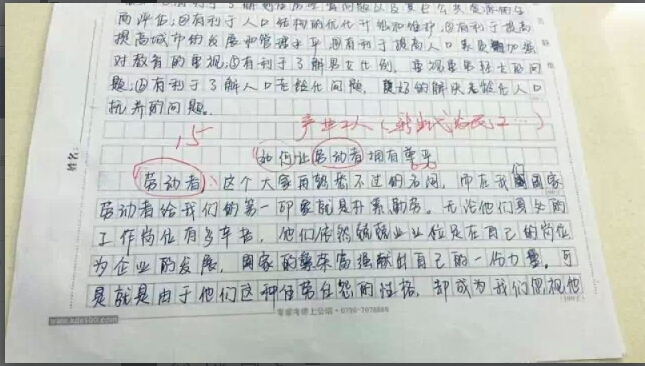 而评估;③有利于人口结构的优化升级和维护;④有利于提高
提高城市的发展和管理水平;⑤有利于提高人口素质,加强
对教育的重视;⑥有利于了解男女比例,重视重男轻女的问
题;⑦有利于了解人口老龄化问题,更好的解决老龄化人口
抚养的问题。
15
产业工人(新生代农民工…)
如何让劳动者拥有尊严
劳动者,这个大家再熟悉不过的名词,而在我们国家
劳动者给我们的第一印象就是朴素勤劳。无论他们身处的
工作岗位有多辛苦,他们依然兢兢业业位足在自己的岗位
为企业的发展,国家的繁荣富强献出自己的一份力量。可
是就是由于他们这种任劳任怨的性格,却成为我们忽视他
姓名: